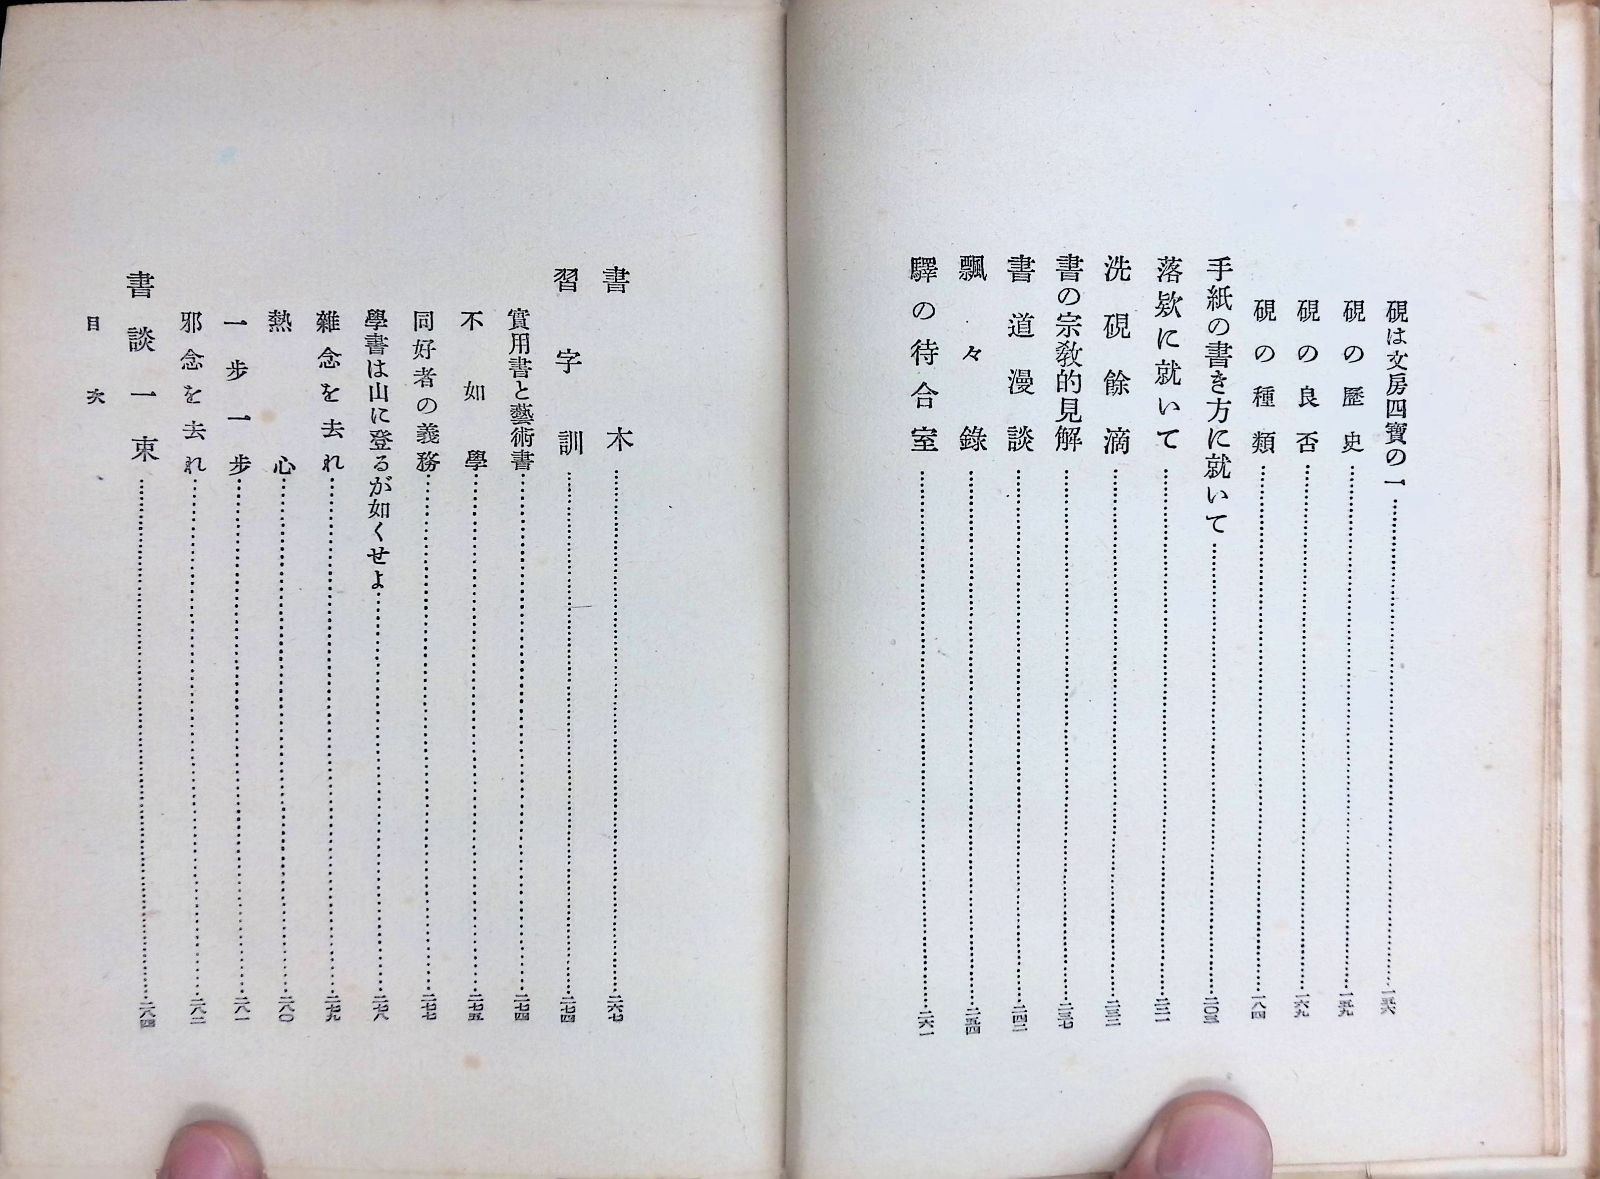 硯は文房四寶の一……一五六
硯の歷史……一五九
硯の良否……一六九
硯の種類……一八四
手紙の書き方に就いて……二〇三
落欵に就いて……二二一
洗硯餘滴……二三二
書の宗敎的見解……二三七
書道漫談……二四二
飄々錄……二五四
驛の待合室……二六一
書木……二六七
習字訓……二七四
實用書と藝術書……二七四
不如學……二七五
同好者の義務……二七七
學書は山に登るが如くせよ……二七八
雜念を去れ……二七九
熱心……二八〇
一步一步……二八一
邪念を去れ……二八二
書談一束……二八四
目次